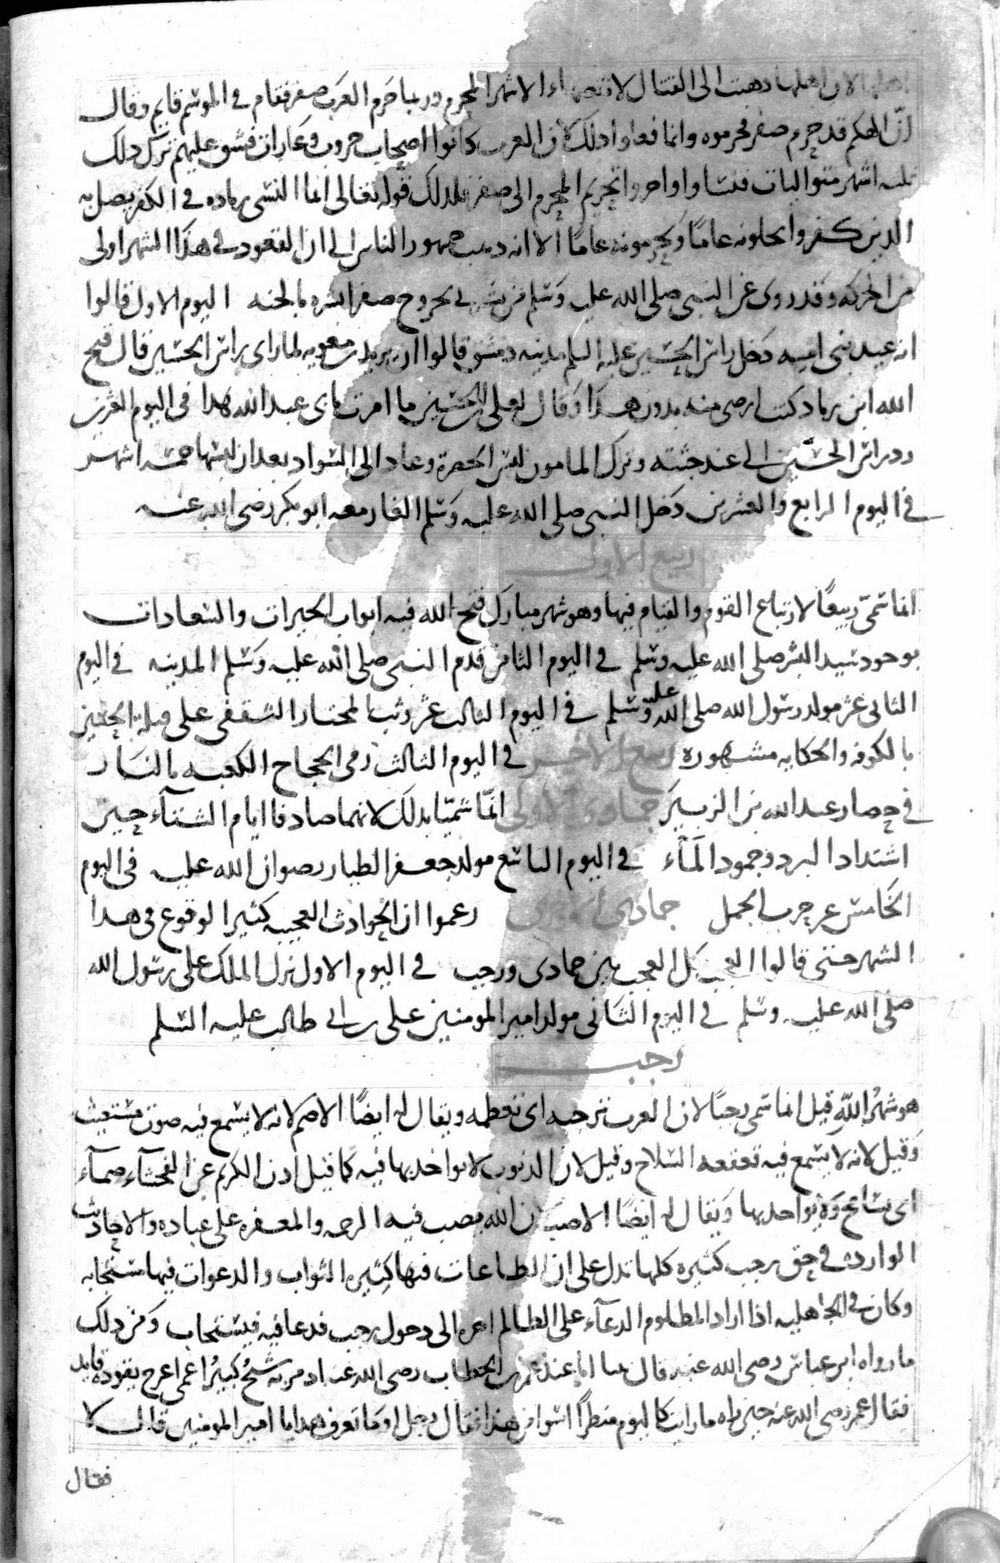 اهلها لان اهلها ذهبت الى القتال لانقضاء الاشهر المحرم وربما حرم العرب صفر فقام في الموسم قايم وقال
انّ الهكم قد حرم صفر فحرموه وانما فعلوا ذلك لان العرب كانوا اصحاب حروب وغارات فشق عليهم ترك ذلك
ثلثه اشهر متواليات فنساوا واخروا تحريم المحرم الى صفر فلذلك قوله تعالى انما النسى زياده في الكفر يضل به
الذين كفروا يحلونه عاماً ويحرمونه عاماً الا انه ذهب جمهور الناس الى ان القعود في هذا الشهر اولى
من الحركه وقد روى عن النبى صلى الله عليه وسلم من بشرنى بخروج صفر ابشره بالجنه اليوم الاول قالوا
انه عيد بنى اميه دخل راس الحسين عليه السلم مدينه دمشق قالوا ان يزيد بن معويه لما راى راس الحسين قال قبح
الله ابن زياد كنت ارضى منه بدون هذا وقال لعلى بن الحسين ما امرت يا ابن عبد الله بهذا فى اليوم العشرين
ورد راس الحسين الى عند جثته وترك المامون لبس الخضرة وعاد الى السواد بعد ان لبسها خمسة اشهر
في اليوم الرابع والعشرين دخل النبى صلى الله عليه وسلم الغار معه ابو بكر رضى الله عنه
ربيع الاول
انما سمّى ربيعًا لارتباع القوم والقيام فيها وهو شهر مبارك فتح الله فيه ابواب الخيرات والسعادات
بوجود سيد البشر صلى الله عليه وسلم في اليوم الثامن قدم النبى صلى الله عليه وسلم المدينه في اليوم
الثانى عشر مولد رسول الله صلى الله عليه وسلم في اليوم الثالث عشر وثب المختار الثقفى على قتلة الحسين
بالكوفه والحكايه مشهوره ربيع الاخر في اليوم الثالث رمى الحجاج الكعبه بالنار
في حصار عبد الله بن الزبير جمادى الاولى انما سميتا بذلك لانهما صادفا ايام الشتآء حين
اشتداد البرد وجمود المآء في اليوم التاسع مولد جعفر الطيار رضوان الله عليه فى اليوم
الخامس عشر حرب الجمل جمادى الاخرى زعموا ان الحوادث العجيبه كثيرا لوقوع فى هذا
الشهر حتى قالوا العجب كل العجب بين جمادى ورجب في اليوم الاول نزل الملك على رسول الله
صلى الله عليه وسلم في اليوم الثانى مولد امير المومنين على بن ابى طالب عليه السلم
رجب
هو شهرُ اللهِ قيل انما سمى رجبًا لان العرب ترجبه اى تعظمه ويقال له ايضًا الاصم لانه لا يسمع فيه صوت مستغيث
وقيل لانه لا يسمع فيه قعقعه السلاح وقيل لان الذنوب لا يواخد بها فيه كما قيل اذن الكريم عن الفحشآء صمآء
اى يتسامح ولا يواخد بها ويقال له ايضًا الاصب لان الله يصب فيه الرحمه والمغفره على عباده والاحاديث
الوارده في حق رجب كثيره كلها تدل على ان الطاعات فيها كثيره الثواب والدعوات فيها مستجابه
وكان في الجاهليه اذا اراد المظلوم الدعآء على الظالم اخره الى دخول رجب فدعا فيه فيستجاب ومن ذلك
ما رواه ابن عباس رضى الله عنه قال بينا انا عند عمر بن الخطاب رضى الله عنه اذ مر به شيخٌ كبيرٌ اعمى اعرج يقوده قايد
فقال عمر رضى الله عنه حين راه ما رايت كاليوم منظرًا اسوا من هذا فقال رجل او ما تعرف هذا يا امير المومنين قال لا
فقال